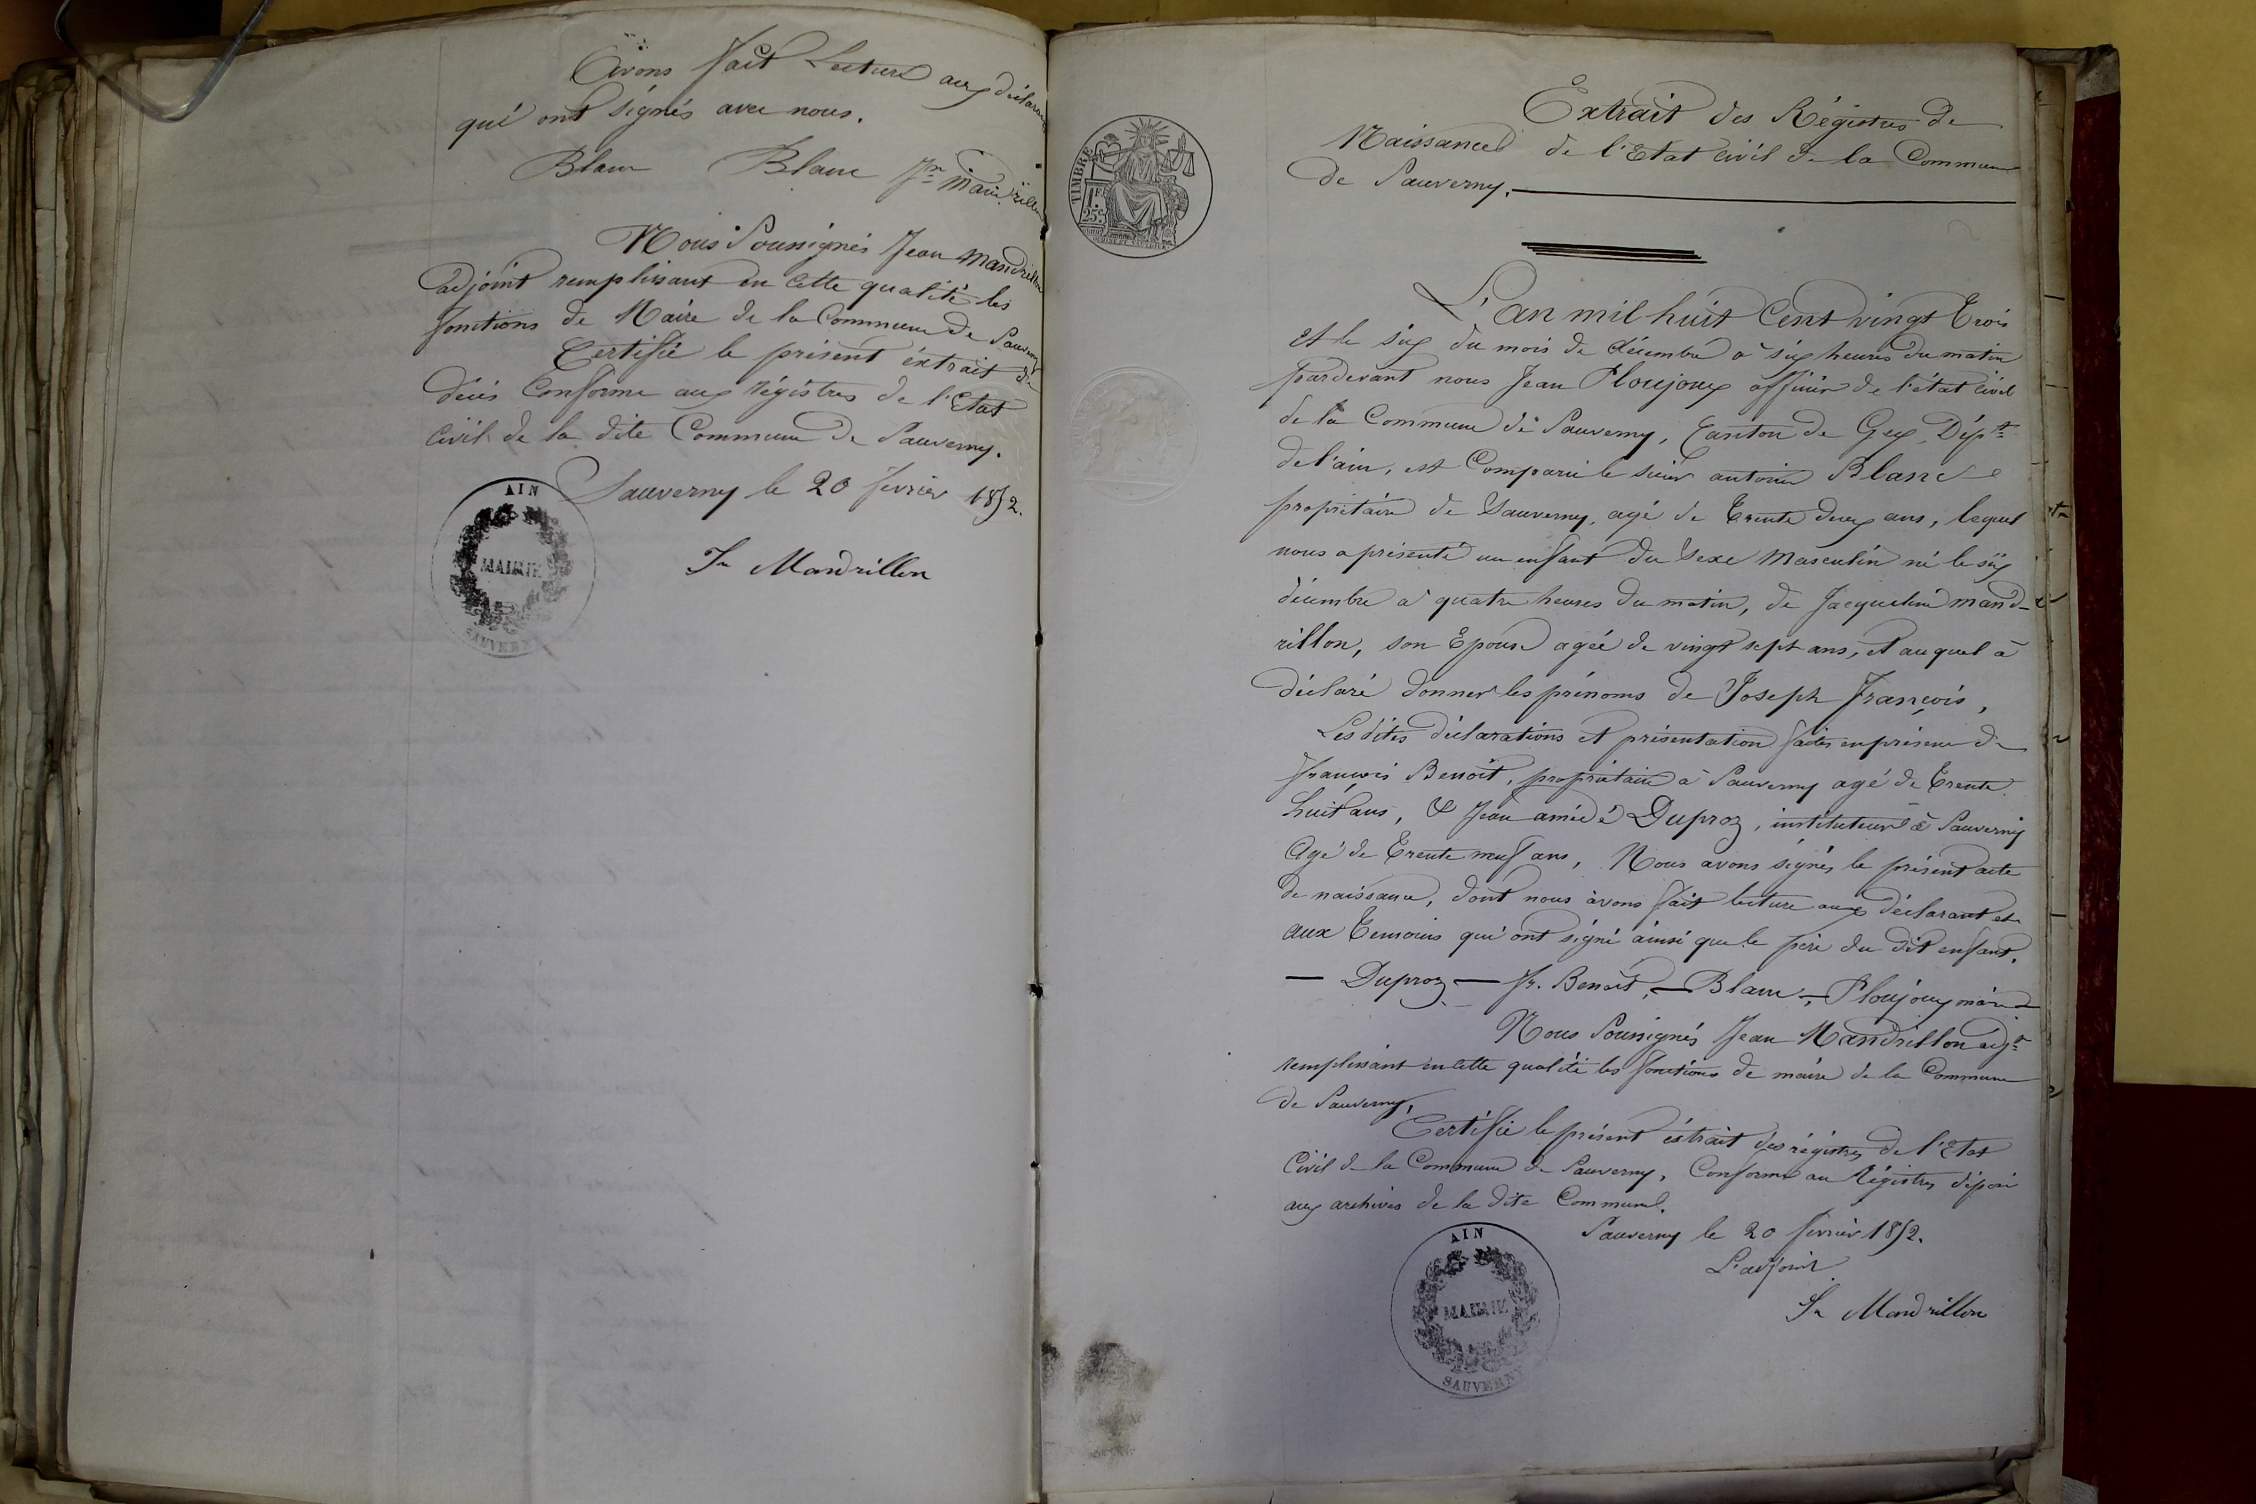 Avons fait Lecture aux déclarants
qui ont signés avec nous.
Blanc Blanc Jn Mandrillon
Nous Soussignés Jean Mandrillon
adjoint remplissant en cette qualité les
fonctions de Maire de la Commune de Sauverny
Certifié le présent éxtrait de
décès Conforme aux Régistres de l'Etat
Civil de la dite Commune de Sauverny.
Sauverny le 20 fevrier 1852.
Jn Mandrillon
AIN
MAIRIE
SAUVERNY
Extrait des Régistres de
Naissance de l'Etat Civil de la Commune
de Sauverny.
TIMBRE
1F
25c
L'an mil huit Cent vingt Trois
et le six du mois de décembre à six heures du matin
pardevant nous Jean Ploujoux officier de l'état Civil
de la Commune de Sauverny, Canton de Gex, Dépt
de l'ain, est Comparu le sieur antoine Blanc
propriétaire de Sauverny, agé de Trente deux ans, lequel
nous a présenté un enfant du Sexe Masculin né le six
décembre à quatre heures du matin, de Jacqueline Mand-
rillon, son Epouse agée de vingt sept ans, et auquel à
déclaré donner les prénoms de Joseph François,
Les dites déclarations et présentation faites en présence de
françois Benoît, propriétaire à Sauverny agé de Trente
huit ans, & Jean amédé Duproz, instituteur à Sauverny
Agé de Trente neuf ans, Nous avons signés le présent acte
de naissance, dont nous àvons fait lecture aux déclarant et
aux Temoins qui ont signé àinsi que le père du dit enfant.
— Duproz — fr. Benoît, — Blanc, — Ploujoux maire
Nous Soussignés Jean Mandrillon adjt
remplissant en cette qualité les fonctions de maire de la Commune
de Sauverny,
Certifié le présent éxtrait des régistres de l'Etat
Civil de la Commune de Sauverny, Conforme au Régistres déposé
aux archives de la dite Commune.
Sauverny le 20 fevrier 1852.
L'adjoint
Jn Mandrillon
AIN
MAIRIE
SAUVERNY